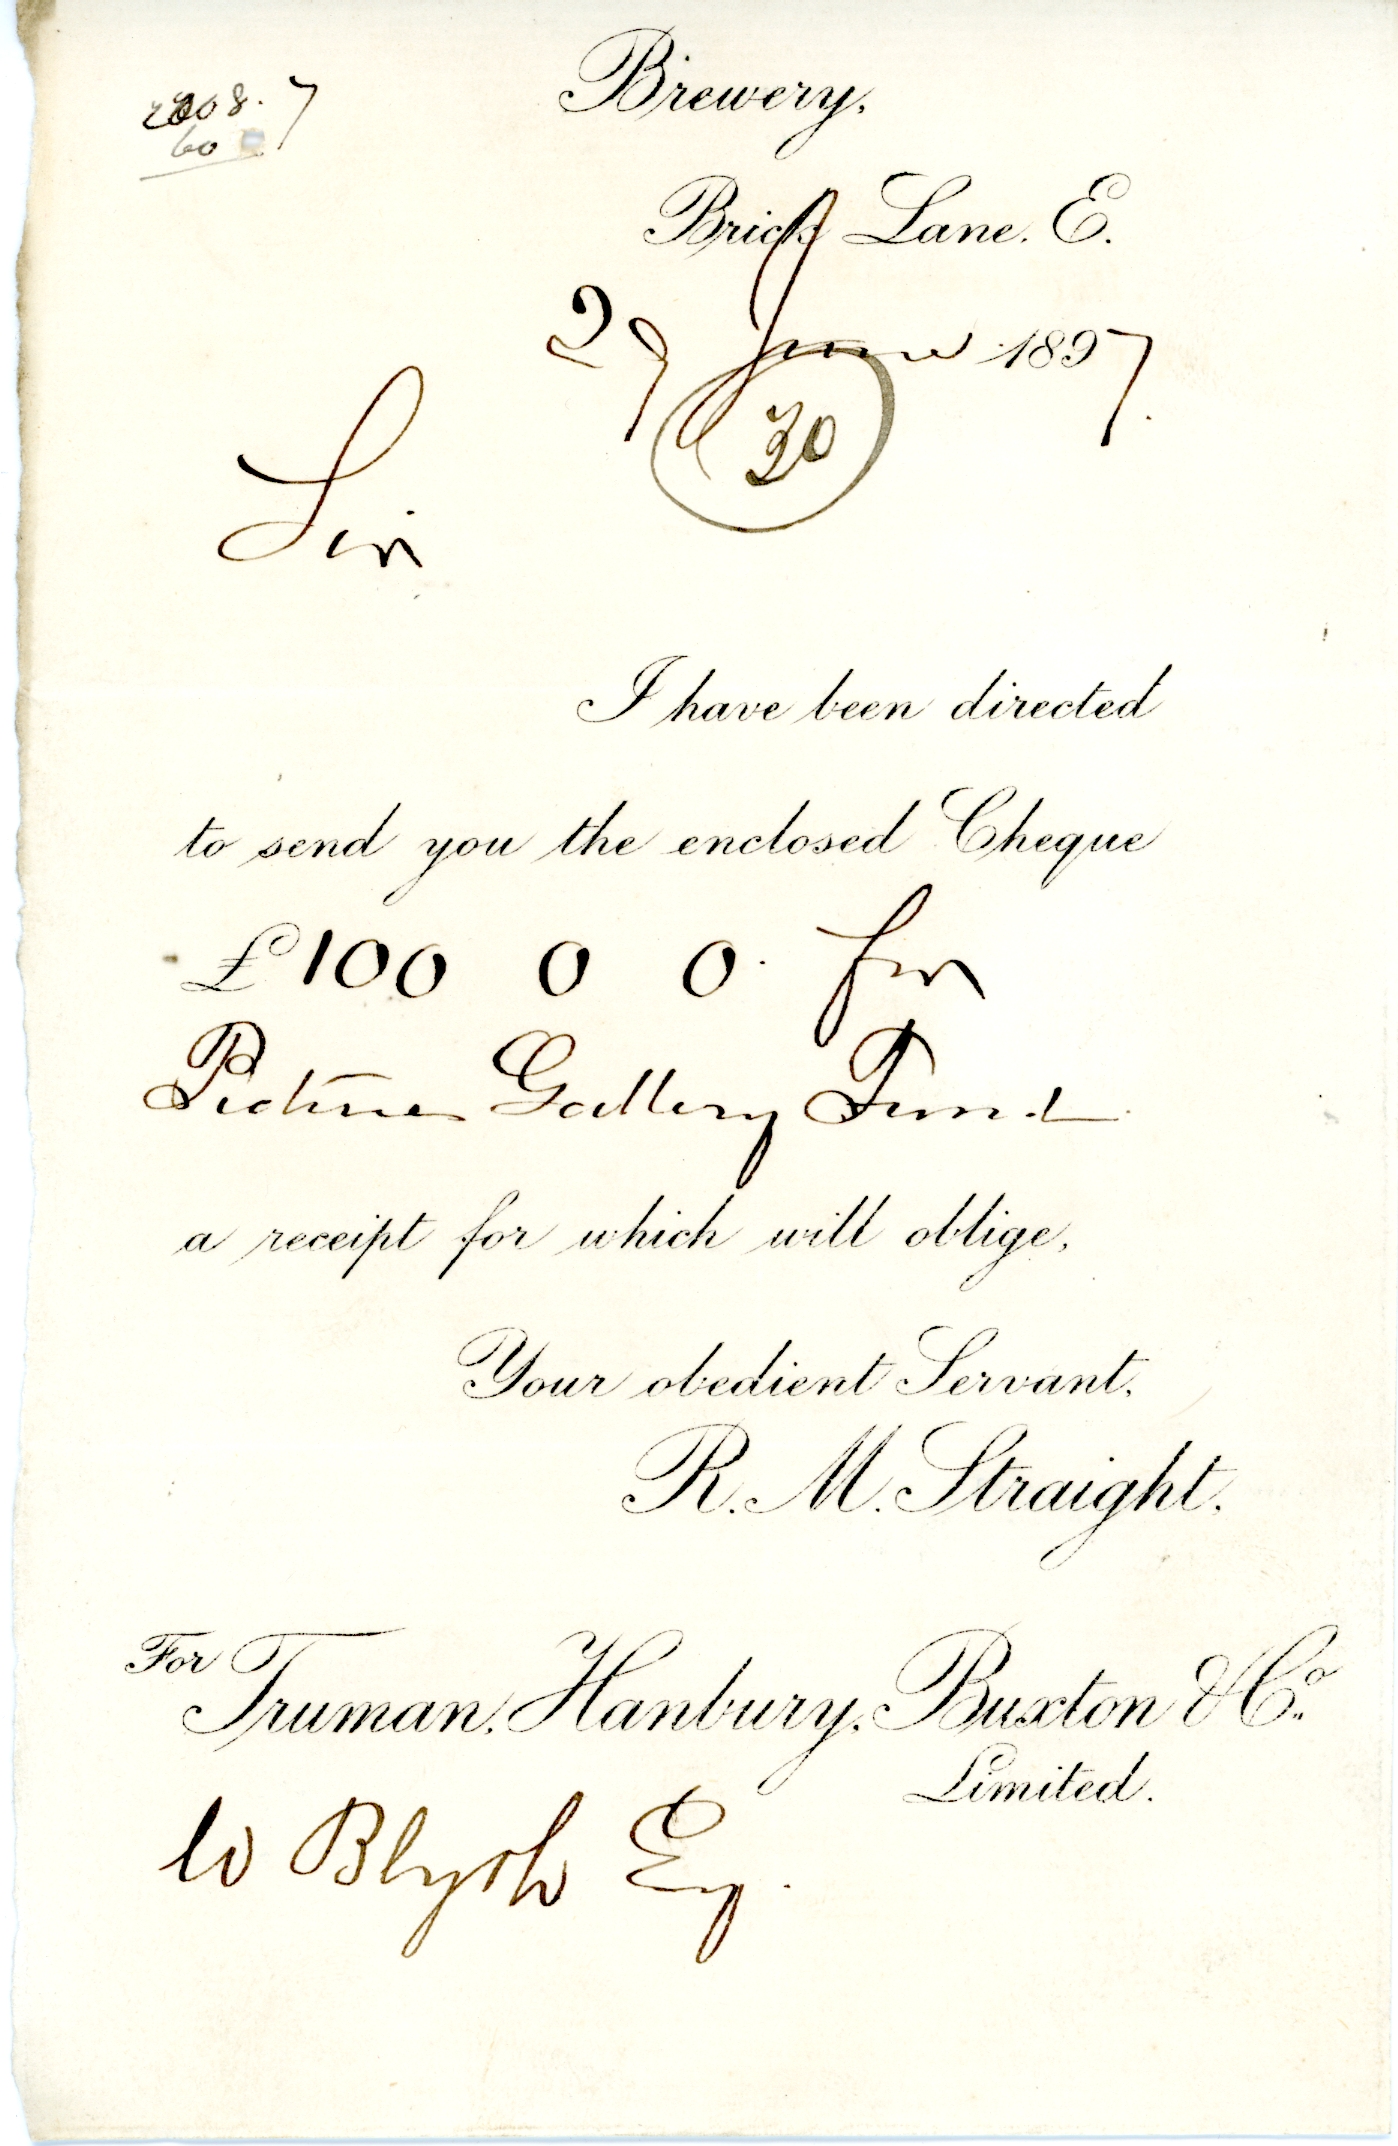 Brewery,
Brick Lane. E.
29 June 1897.
30
Sir
I have been directed
to send you the enclosed Cheque
£100 0 0. for
Picture Gallery Fund
a receipt for which will oblige,
Your obedient Servant,
R. M. Straight.
For Truman, Hanbury, Buxton & Co.
Limited.
W Blyth Esq.